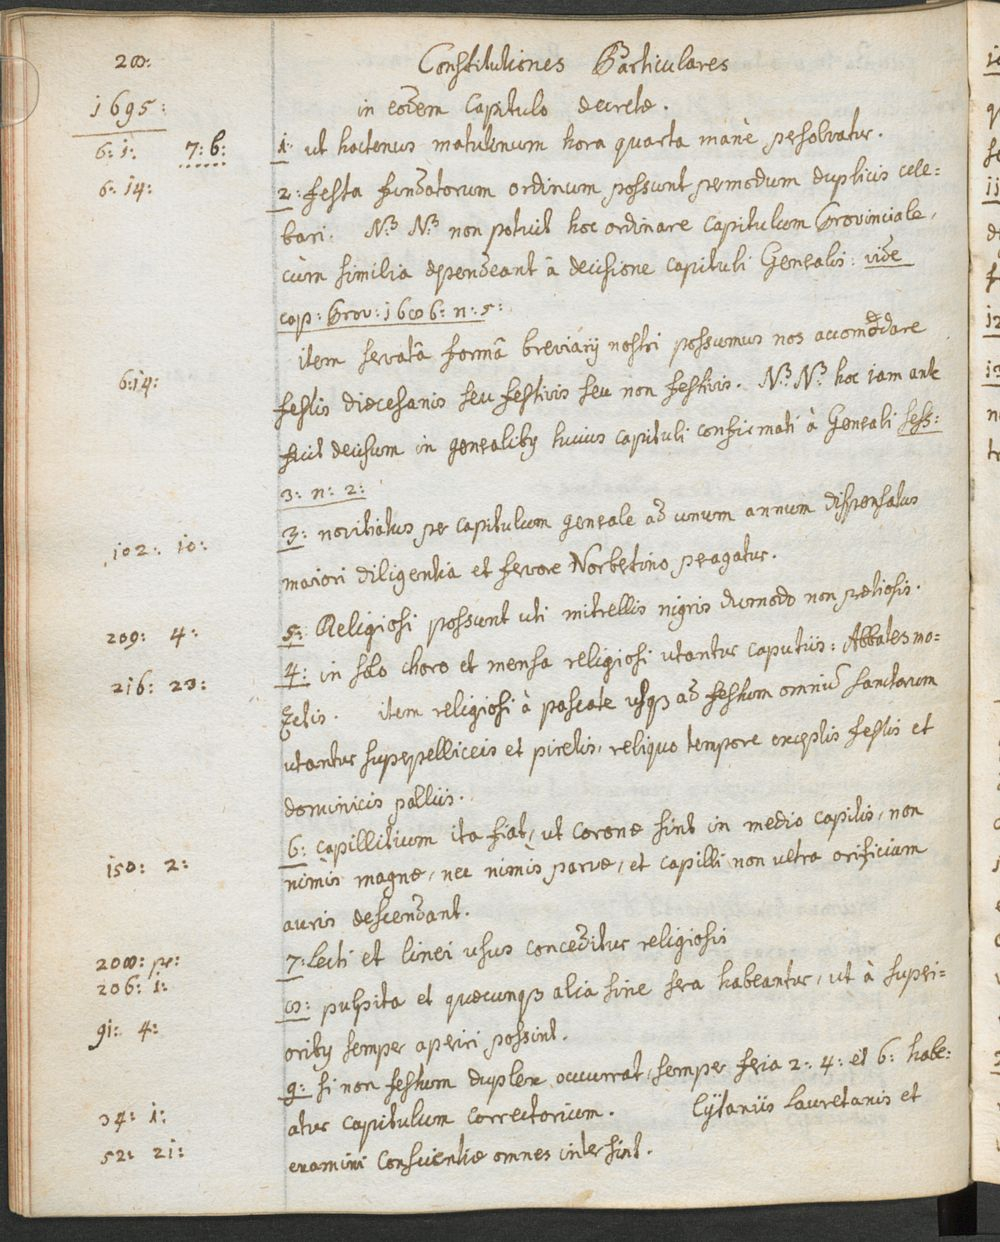 28: Constitutiones Particulares
1695: in eodem Capitulo decretæ.
6: 1: 7: 6: 1: ut hactenus matutinum hora quarta manè persolvatur.
6: 14: 2: festa fundatorum ordinum possunt per modum duplicis cele=
bari. N.B. N.B. non potuit hoc ordinare capitulum Provinciale,
cùm similia dependeant â decisione capituli Generalis: vide
cap: Prov: 1686: n: 5:
item servatâ formâ breviarij nostri possumus nos accomodare
6:14: festis diœcesanis seu festivis seu non festivis. N.B. N.B. hoc iam ante
fuit decisum in generalibus huius capituli confirmati à Generali sess:
3: n: 2:
102: 10: 3: novitiatus per capitulum generale ad unum annum dispensatus
maiori diligentia et fervore Norbertino peragatur.
209: 4: 5: Religiosi possunt uti mitrellis nigris dummodo non pretiosis.
216: 23: 4: in solo choro et mensa religiosi utantur caputiis: Abbates mo=
zetis. item religiosi à pascate usque ad festum omnium sanctorum
utantur superpelliceis et piretis, reliquo tempore exceptis festis et
dominicis palliis.
6: capillitium ita fiat, ut coronæ sint in medio capitis, non
150: 2: nimis magnæ, nec nimis parvæ, et capilli non ultra orificium
auris descendant.
208: pr: 7: Lecti et linei usus conceditur religiosis
206: 1: 8: pulpita et quæcunque alia sine sera habeantur, ut à superi=
91: 4: oribus semper aperiri possint.
9: si non festum duplex occurrat, semper feria 2: 4: et 6: habe=
34: 1: atur capitulum correctorium. Lÿtaniis Lauretanis et
52: 21: examini conscientiæ omnes intersint.